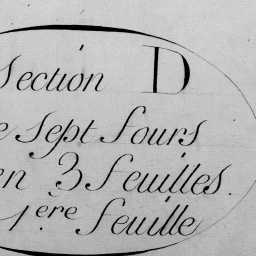 Section D
e Sept Fours
en 3 feuilles.
1ère feuille